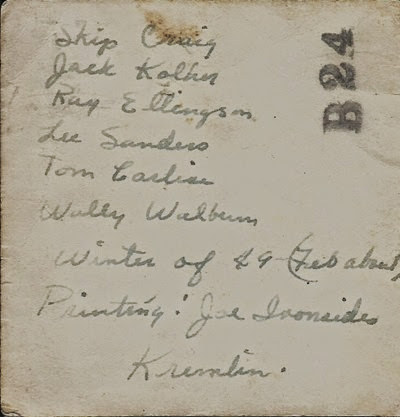 Skip Craig
Jack Kolher
Ray Ellingson
Lee Sanders
Tom Carlise
Wally Walburn
Winter of 49 (Feb about)
Printing: Joe Ironsides
Kremlin.
B24